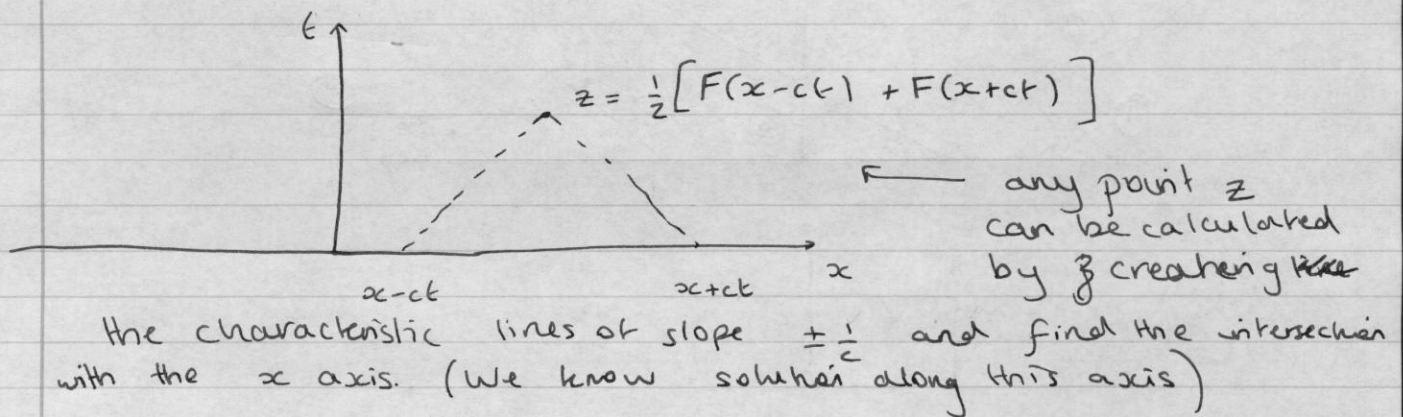 t
z = ½[F(x-ct) + F(x+ct)]
← any point z
can be calculated
by creating
x
x-ct x+ct
the characteristic lines of slope ± 1/c and find the intersection
with the x axis. (We know solution along this axis)